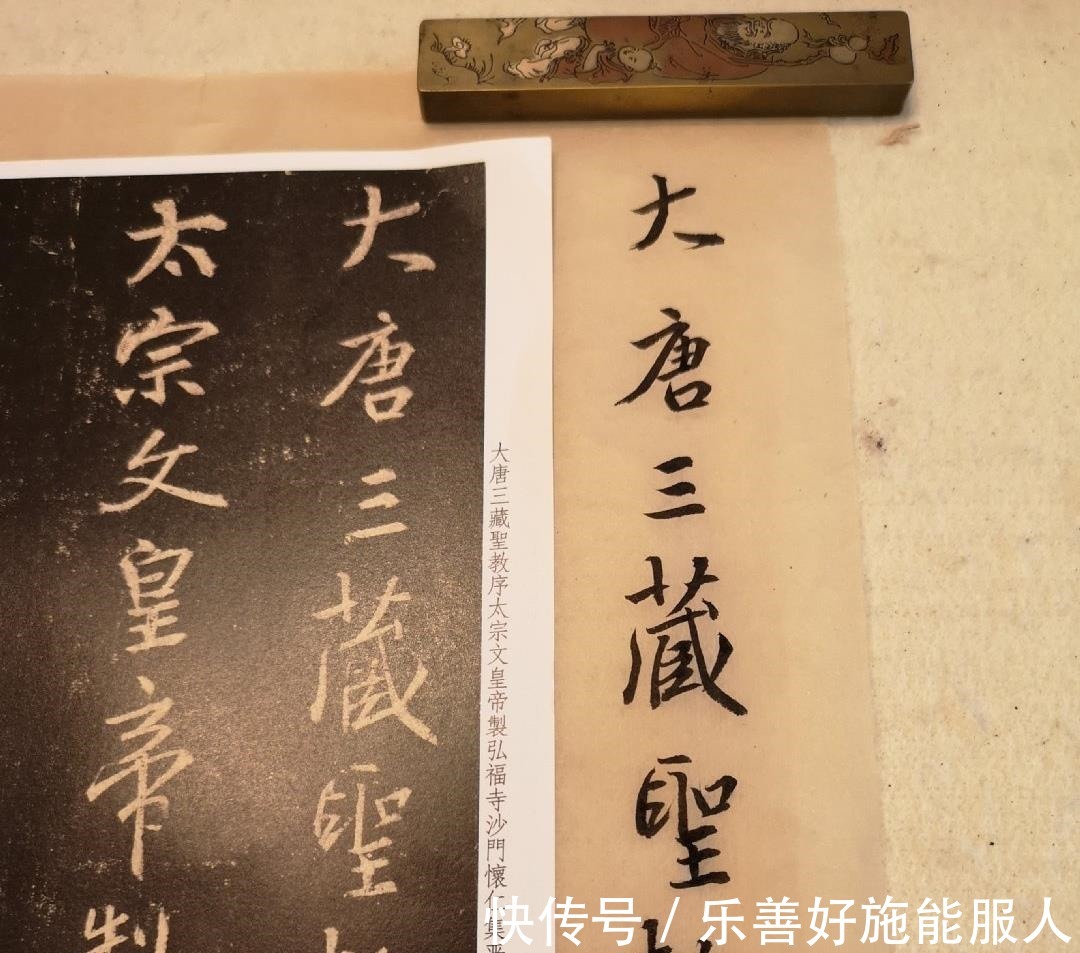 大唐三藏聖
大唐三藏聖教序太宗文皇帝製弘福寺沙門懷仁集
大唐三藏聖
太宗文皇帝
快传号 / 乐善好施能服人